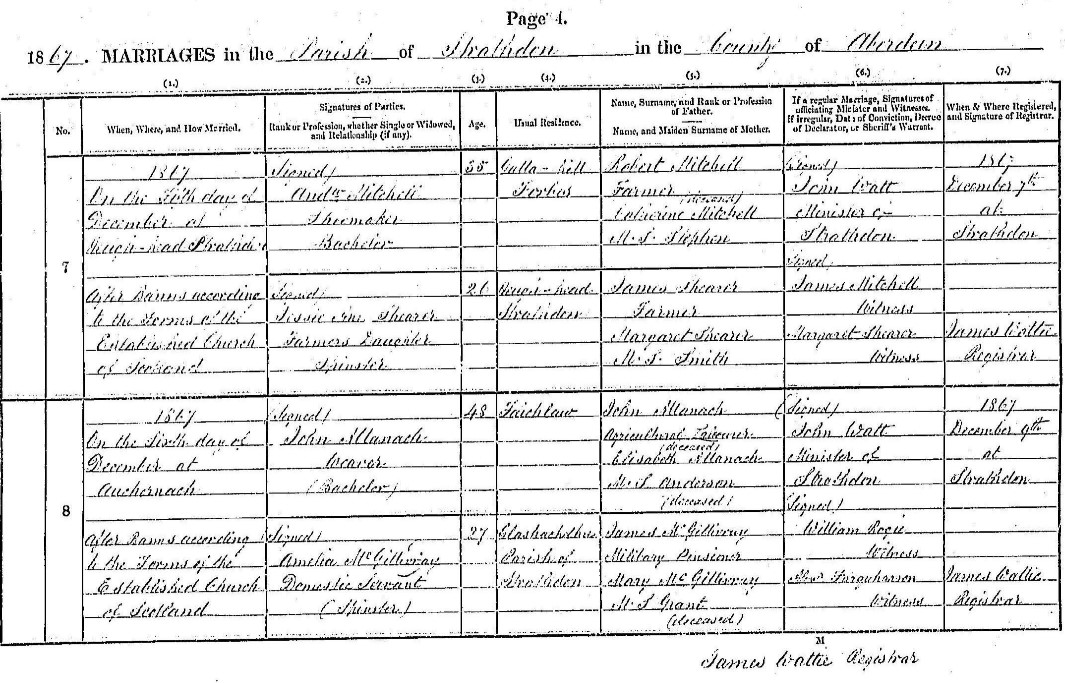 Page 4.
1867. MARRIAGES in the Parish of Strathdon in the County of Aberdeen
(1.) (2.) (3.) (4.) (5.) (6.) (7.)
No.
When, Where, and How Married.
Signatures of Parties.
Rank or Profession, whether Single or Widowed, and Relationship (if any).
Age.
Usual Residence.
Name, Surname, and Rank or Profession of Father.
Name, and Maiden Surname of Mother.
If a regular Marriage, Signatures of officiating Minister and Witnesses.
If irregular, Date of Conviction, Decree of Declarator, or Sheriff's Warrant.
When & Where Registered, and Signature of Registrar.
7
1867
On the day of
December at
head
After Banns according
to the Forms of the
Established Church
of Scotland
(Signed)
Andw Mitchell
Shoemaker
Bachelor
(Signed)
Jessie Shearer
Farmers Daughter
Spinster
35
26
hill
Forbes
head
Strathdon
Robert Mitchell
Farmer
(deceased)
Catherine Mitchell
M. S. Stephen
James Shearer
Farmer
Margaret Shearer
M. S. Smith
(Signed)
John Watt
Minister of
Strathdon
Signed
James Mitchell
Witness
Margaret Shearer
Witness
1867
December 7th
at
Strathdon
James Wattie
Registrar
8
1867
On the Sixth day of
December at
Auchernach
After Banns according
to the Forms of the
Established Church
of Scotland
(Signed)
John Allanach
Weaver
(Bachelor)
(Signed)
Amelia McGillivray
Domestic Servant
(Spinster)
48
27
Parish of
Strathdon
John Allanach
Agricultural Labourer
(deceased)
Elisabeth Allanach
M. S. Anderson
(deceased)
James McGillivray
Military Pensioner
Mary McGillivray
M. S. Grant
(deceased)
(Signed)
John Watt
Minister of
Strathdon
(Signed)
William
Witness
Farquharson
Witness
1867
December 9th
at
Strathdon
James Wattie
Registrar
M
James Wattie Registrar